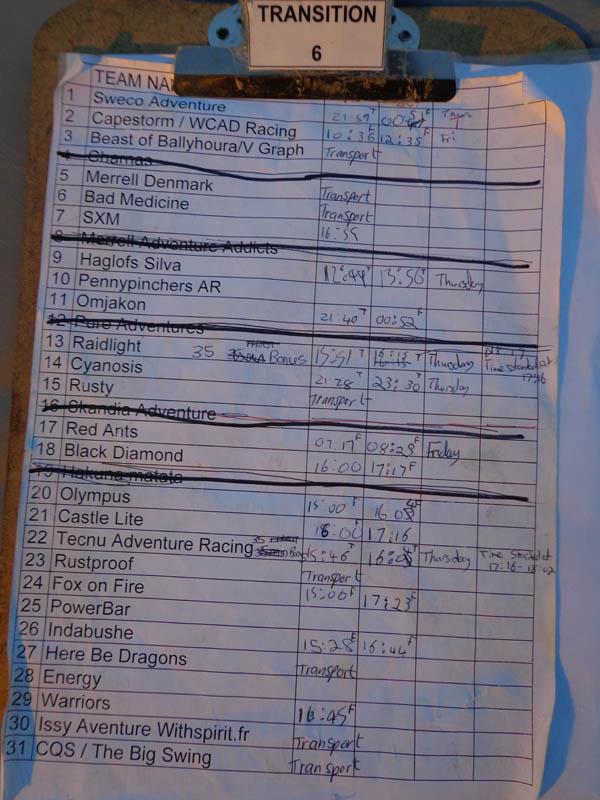 TRANSITION
6
TEAM NA
1 Sweco Adventure
2 Capestorm / WCAD Racing 21:57 T
3 Beast of Ballyhoura/V Graph 10:36 F 12:35 F Fri
4 Chamas Transport
5 Merrell Denmark
6 Bad Medicine Transport
7 SXM Transport
8 Merrell Adventure Addicts 16:59
9 Haglofs Silva
10 Pennypinchers AR 12:44 T 13:56 T Thursday
11 Omjakon
12 Pure Adventures 21:40 T 00:52 F
13 Raidlight 35 Bonus 15:51 T Thursday
14 Cyanosis 21:28 T 23:30 T Thursday Time started at 17:56
15 Rusty Transport
16 Skandia Adventure
17 Red Ants 07:17 F 08:29 F Friday
18 Black Diamond 16:00 17:17 F
19 Hakuna matata
20 Olympus 15:00 F 16:03 F
21 Castle Lite 16:00 F 17:16
22 Tecnu Adventure Racing 35 15:46 T Thursday Time Stopped at
23 Rustproof Transport 17:16-18:02
24 Fox on Fire 15:06 F 17:23 F
25 PowerBar
26 Indabushe 15:28 F 16:44 F
27 Here Be Dragons Transport
28 Energy
29 Warriors 16:45 F
30 Issy Aventure Withspirit.fr Transport
31 CQS / The Big Swing Transport